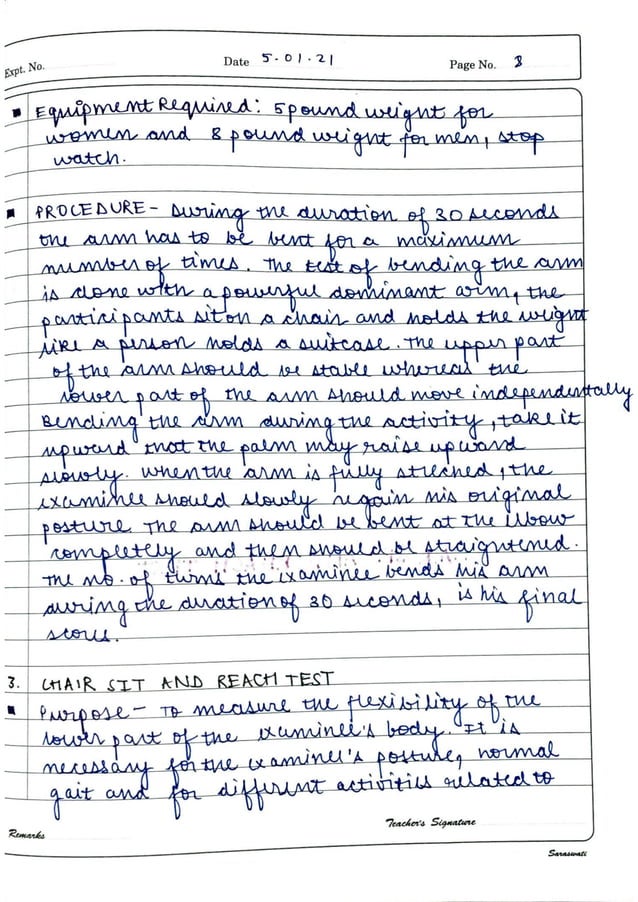 Expt. No.
Date 5.01.21
Page No. 3
Equipment Required: 5 pound weight for
women and 8 pound weight for men, stop
watch.
PROCEDURE - During the duration of 30 seconds
the arm has to be bent for a maximum
number of times. The test of bending the arm
is done with a powerful dominant arm, the
participants sit on a chair and holds the weight
like a person holds a suitcase. The upper part
of the arm should be stable whereas the
lower part of the arm should move independentally
Bending the arm during the activity, take it
upward that the palm may raise upward
slowly. When the arm is fully streched, the
examinee should slowly regain his original
posture. The arm should be bent at the elbow
completely and then should be straightened.
The no. of turns the examinee bends his arm
during the duration of 30 seconds, is his final
score.
3. CHAIR SIT AND REACH TEST
Purpose - To measure the flexibility of the
lower part of the examinee's body. It is
necessary for the examinee's posture, normal
gait and for different activities related to
Teacher's Signature
Remarks
Saraswati